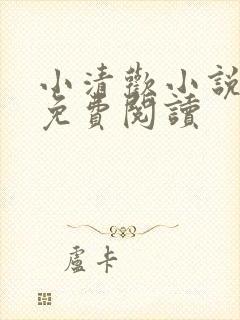 小清歡小說
免費閱讀
盧卡